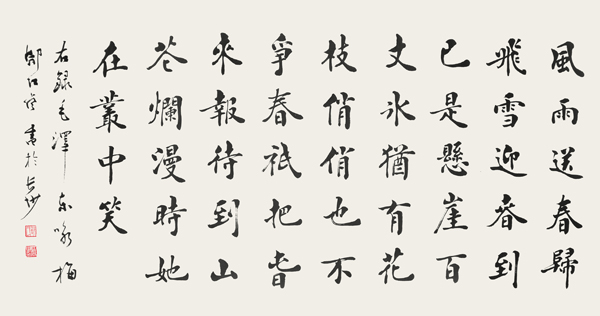 風雨送春歸
飛雪迎春到
已是懸崖百
丈冰猶有花
枝俏俏也不
爭春祇把春
來報待到山
花爛漫時她
在叢中笑
右録毛澤東咏梅
書於長沙